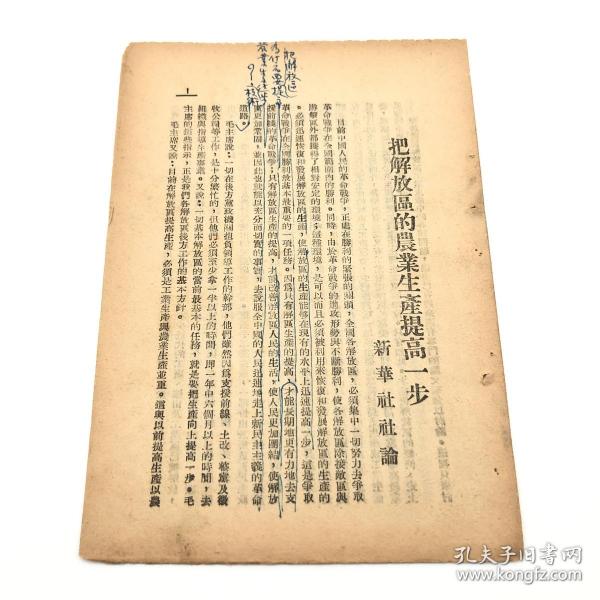 把解放區的農業生產提高一步
新華社社論
目前中國人民的革命戰爭，正處在勝利的緊張的關頭，全國各解放區，必須集中一切努力去爭取
革命戰爭在全國範圍內的勝利。同時，由於革命戰爭的進攻形勢與不斷勝利，使各解放區除接敵區與
游擊區外都獲得了相對安定的環境；這種環境，是可以而且必須被利用來恢復和發展解放區的生產的
。必須迅速恢復和發展解放區的生產，使解放區的生產能够在現有的水平上迅速提高一步，這是爭取
革命戰爭在全國勝利最基本最重要的一項任務。因爲只有解區生產的提高，才能長期地更有力地去支
援前線的革命戰爭；只有解放區生產的提高，才能改善解放區人民的生活，使人民更加團結，使解放
區更加鞏固，並因此也就能以充分而切實的事實，去說服全中國的人民迅速地走上新民主主義的革命
道路。
毛主席說：一切在後方黨政機關担負領導工作的幹部，他們雖然因爲支援前線、土改、整黨及徵
收公糧等工作，是十分繁忙的，但他們必須至少拿一半以上的時間，即一年中六個月以上的時間，去
組織與指導生產事業。又說：一切基本解放區的當前最基本的任務，就是要把生產向上提高一步。毛
主席的這些指示，正是我們各解放區後方工作的基本方針。
毛主席又說：目前在解放區提高生產，必須是工業生產與農業生產並重。這與以前提高生產以農
1
把解放區
孔夫子旧书网
www.kongfz.com